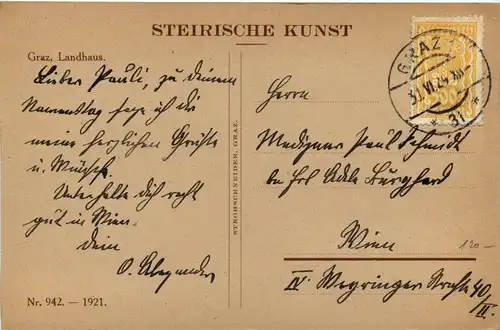 STEIRISCHE KUNST
Graz, Landhaus.
Lieber Pauli, zu deinem
Namenstag sage ich dir
meine herzlichen Grüße
u. Wünsche.
Unterhalte dich recht
gut in Wien.
Dein
O. Alexander
Nr. 942. — 1921.
STROHSCHNEIDER, GRAZ.
GRAZ 1
30.VI.24
* 3f *
Herrn
Mediziner Paul Schmidt
bei Frl Adele Burghard
Wien
120-
IV. Weyringer Straße 40/II.